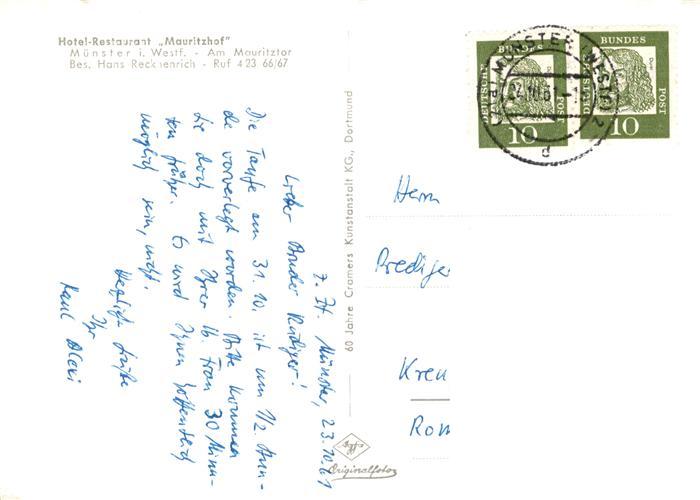 Hotel-Restaurant „Mauritzhof"
Münster i. Westf. - Am Mauritztor
Bes. Hans Reckhenrich - Ruf 4 23 66/67
z. Zt. Münster, 23.10.61
Lieber Bruder Rüdiger!
Die Taufe am 31.10. ist um 1/2 Stun-
de vorverlegt worden. Bitte kommen
Sie doch mit Ihrer lb. Frau 30 Minu-
ten früher. Es wird Ihnen hoffentlich
möglich sein, nicht.
Herzliche Grüße
Ihr
60 Jahre Cramers Kunstanstalt KG., Dortmund
Originalfoto
DEUTSCHE
BUNDES
POST
10
DEUTSCHE
BUNDES
POST
10
MÜNSTER (WESTF) 2
d
Herrn
Prediger
Kreu
Rom